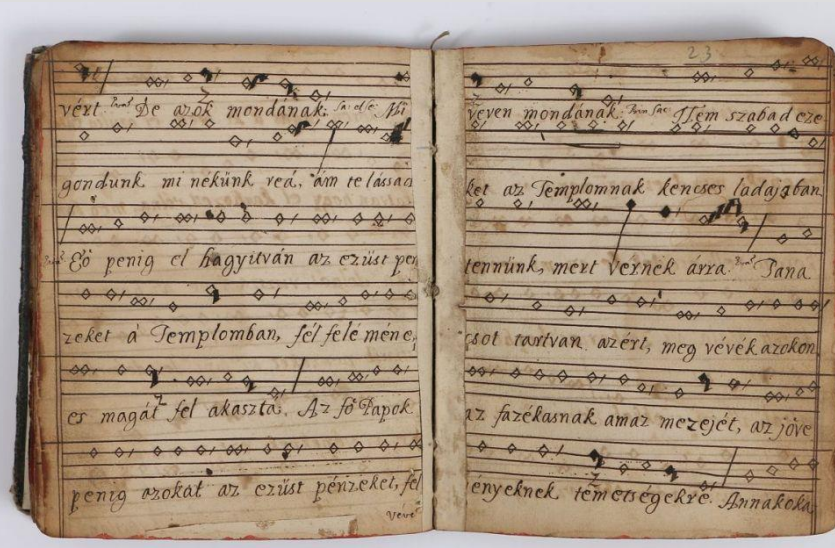 vért De azok mondának: Mi
gondunk mi nékünk reá, ám te lássad
Eő penig el hagyitván az ezüst pén
zeket á Templomban, fél felé méne,
es magát fel akasztá. Az fő Papok
penig azokat az ezüst pénzeket, fél
veve
23
veven mondának: Nem szabad eze
ket az Templomnak kencses ladajaban
tennünk, mert vérnek árra Tana
csot tartván azért, meg vévék azokon
az fazékasnak amaz mezejét, az jöve
vényeknek temetségekre. Annakoka